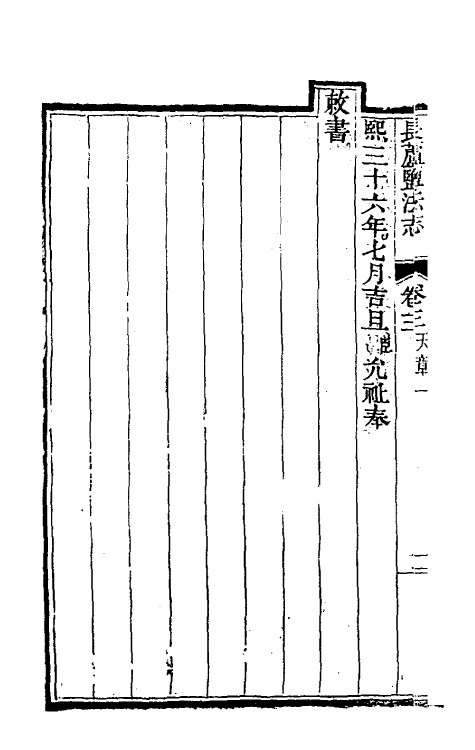 長蘆鹽法志 卷三 天章一
熙三十六年七月吉旦臣允祉奉
敕書